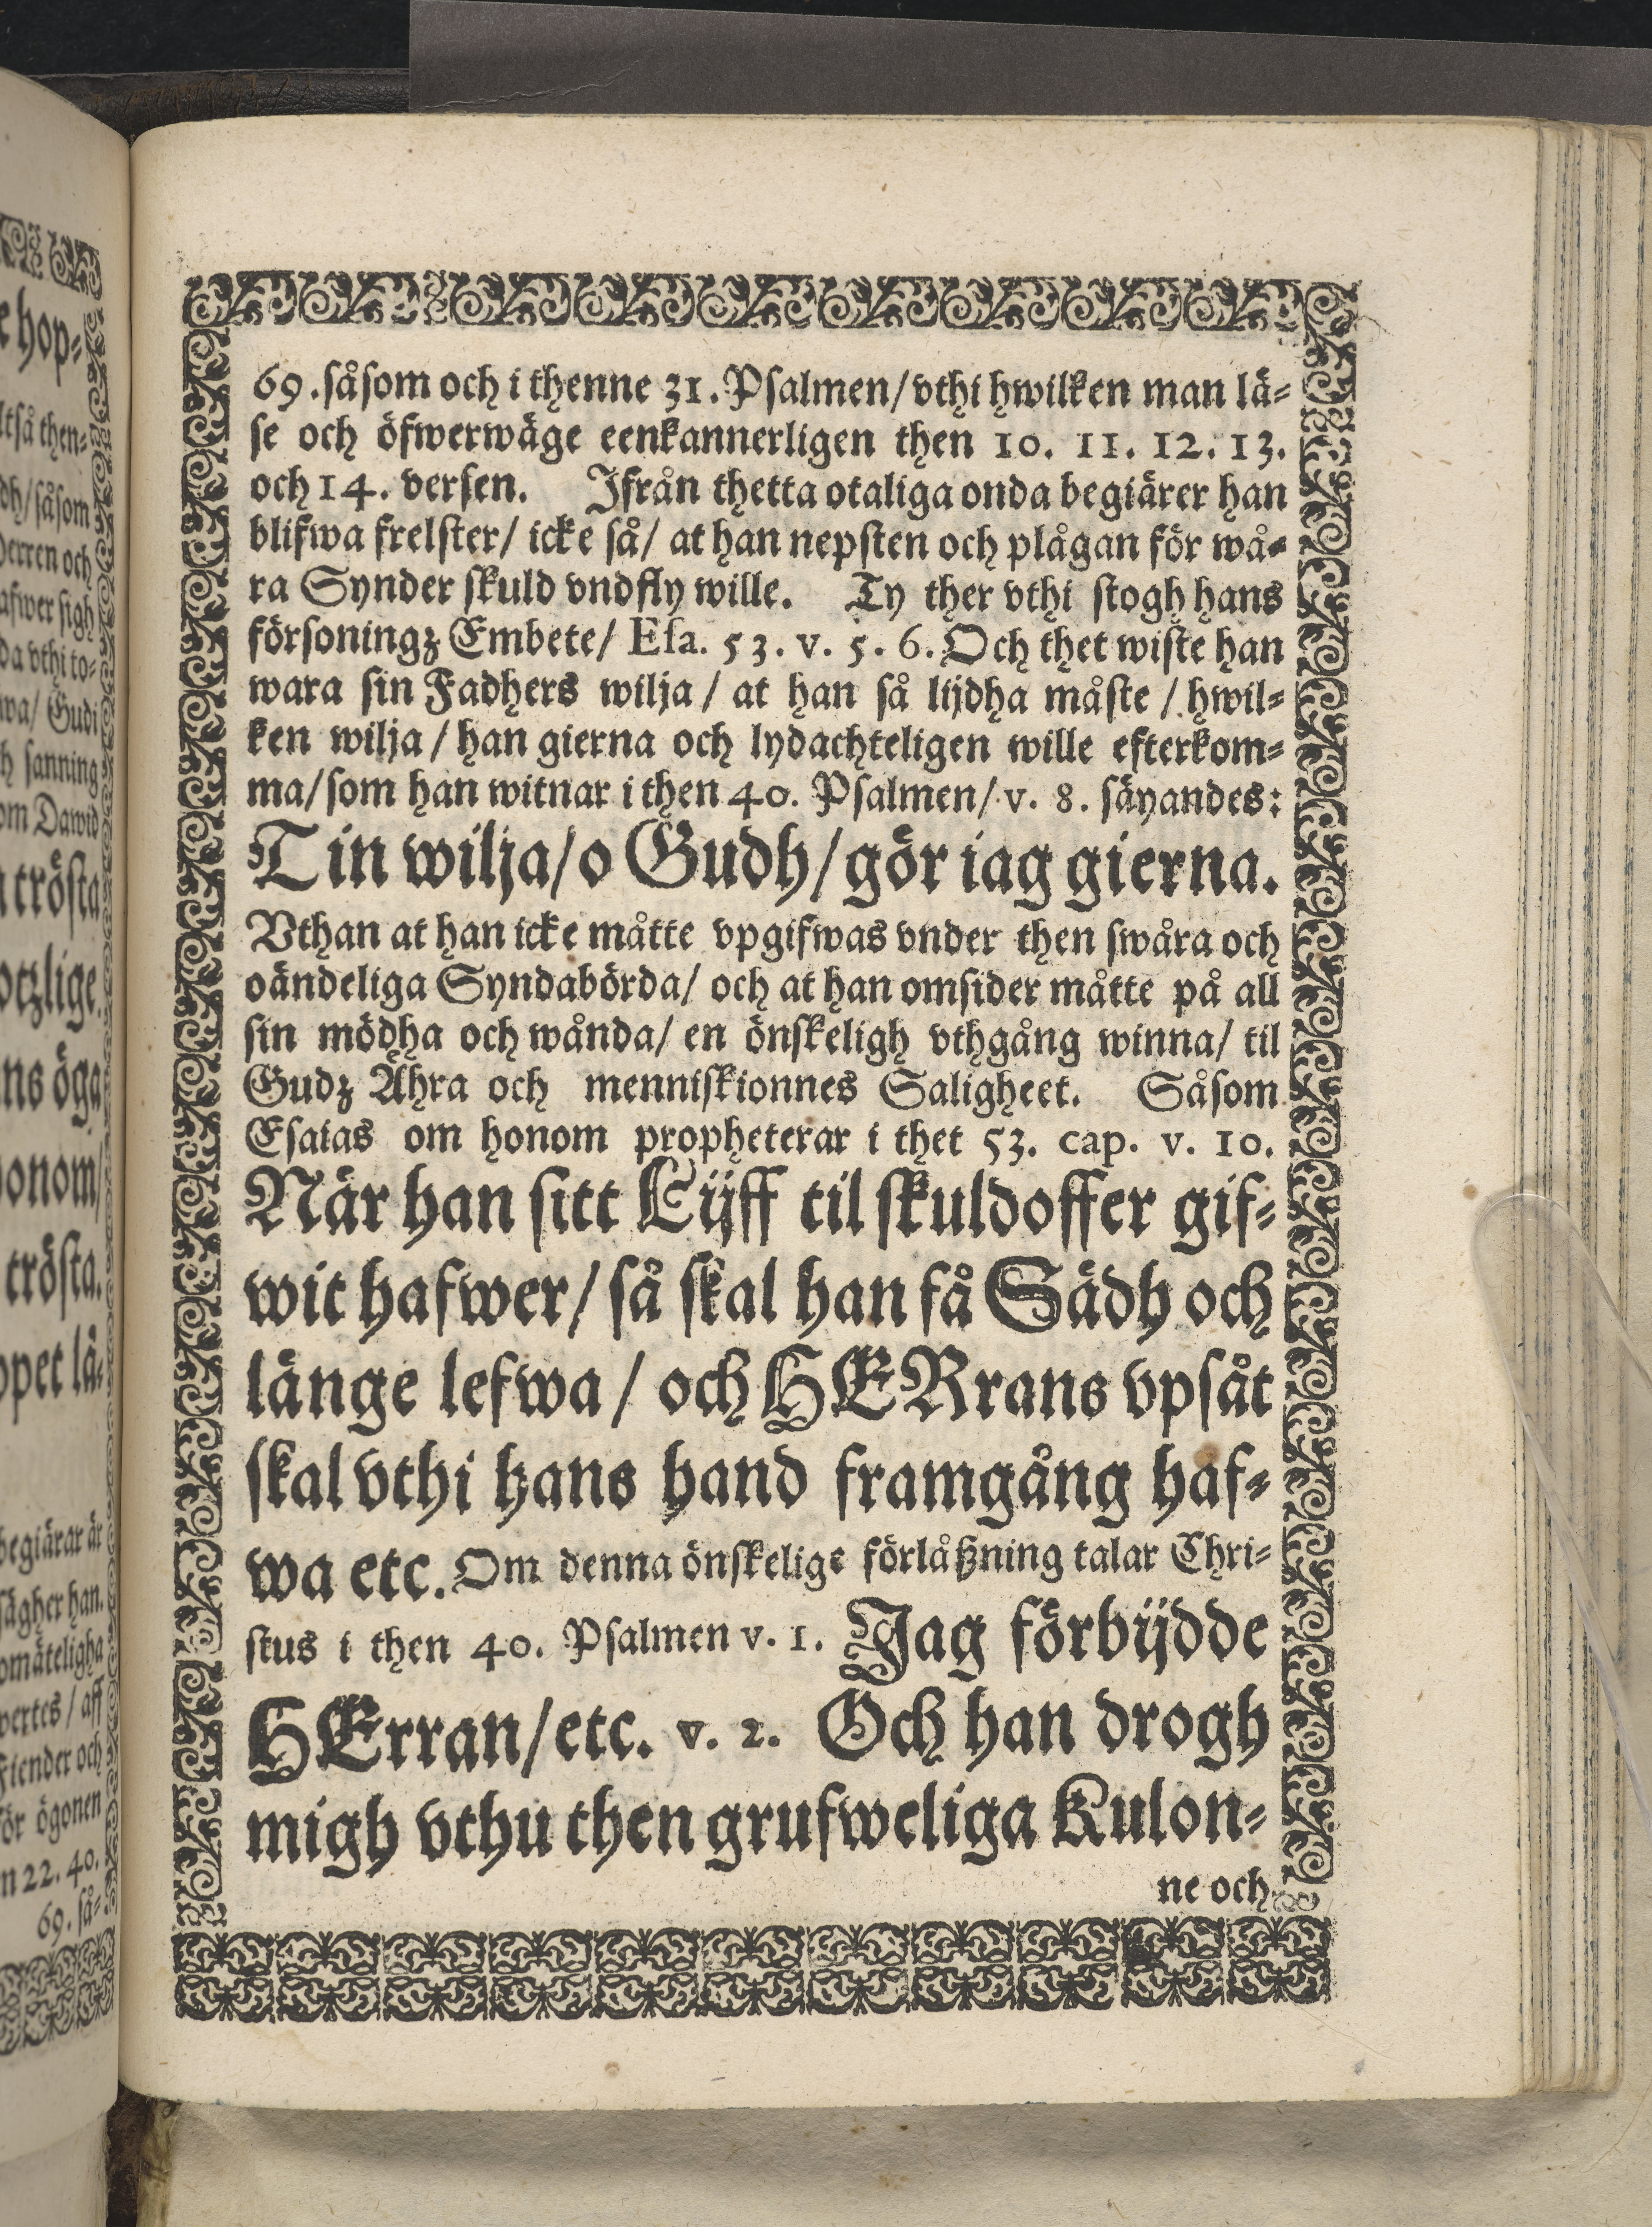 69. såsom och i thenne 31. Psalmen/ vthi hwilken man lä-
se och öfwerwäge eenkannerligen then 10. 11. 12. 13.
och 14. versen. Ifrån thetta otaliga onda begiärer han
blifwa frelster/ icke så/ at han nepsten och plågan för wå-
ra Synder skuld vndfly wille. Ty ther vthi stogh hans
försoningz Embete/ Esa. 53. v. 5. 6. Och thet wiste han
wara sin Fadhers wilja / at han så lijdha måste / hwil-
ken wilja / han gierna och lydachteligen wille efterkom-
ma/ som han witnar i then 40. Psalmen/ v. 8. säyandes:
Tin wilja/ o Gudh/ gör iag gierna.
Vthan at han icke måtte vpgifwas vnder then swåra och
oändeliga Syndabörda/ och at han omsider måtte på all
sin mödha och wånda/ en önskeligh vthgång winna/ til
Gudz Ähra och menniskionnes Saligheet. Såsom
Esaias om honom propheterar i thet 53. cap. v. 10.
När han sitt Lijff til skuldoffer gif-
wit hafwer/ så skal han få Sädh och
länge lefwa / och HERrans vpsåt
skal vthi hans hand framgång haf-
wa etc. Om denna önskelige förlåßning talar Chri-
stus i then 40. Psalmen v. 1. Jag förbijdde
HErran/ etc. v. 2. Och han drogh
migh vthu then grufweliga Kulon-
ne och